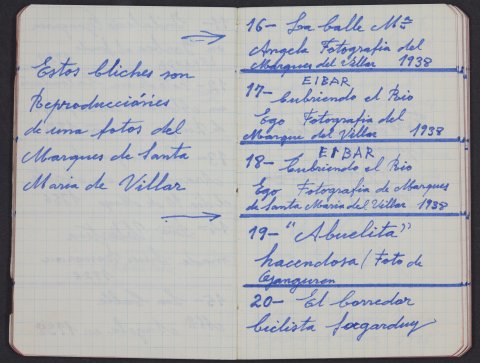 Estos cliches son
Reproducciónes
de una fotos del
Marques de Santa
Maria de Villar
16- La Calle Mª
Angela Fotografia del
Marques del Villar 1938
17- EIBAR
Cubriendo el Rio
Ego Fotografia del
Marque del Villar 1938
18- EIBAR
Cubriendo el Rio
Ego Fotografia de Marques
de Santa Maria del Villar 1938
19- "Abuelita"
hacendosa / Foto de
Ojanguren
20- El Corredor
ciclista